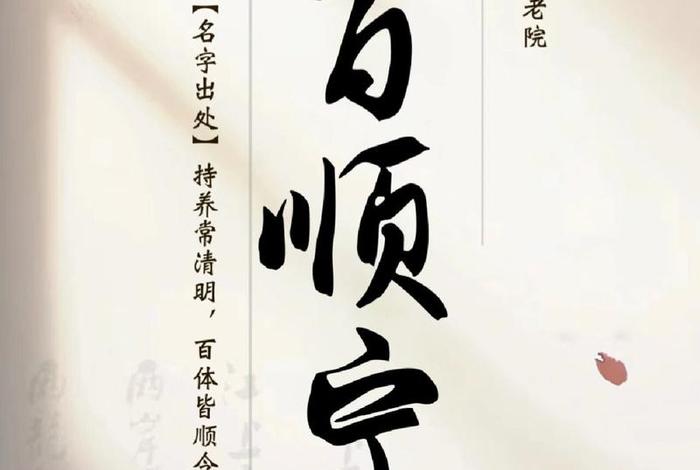 老院
顺宁
【名字出处】持养常清明，百体皆顺令